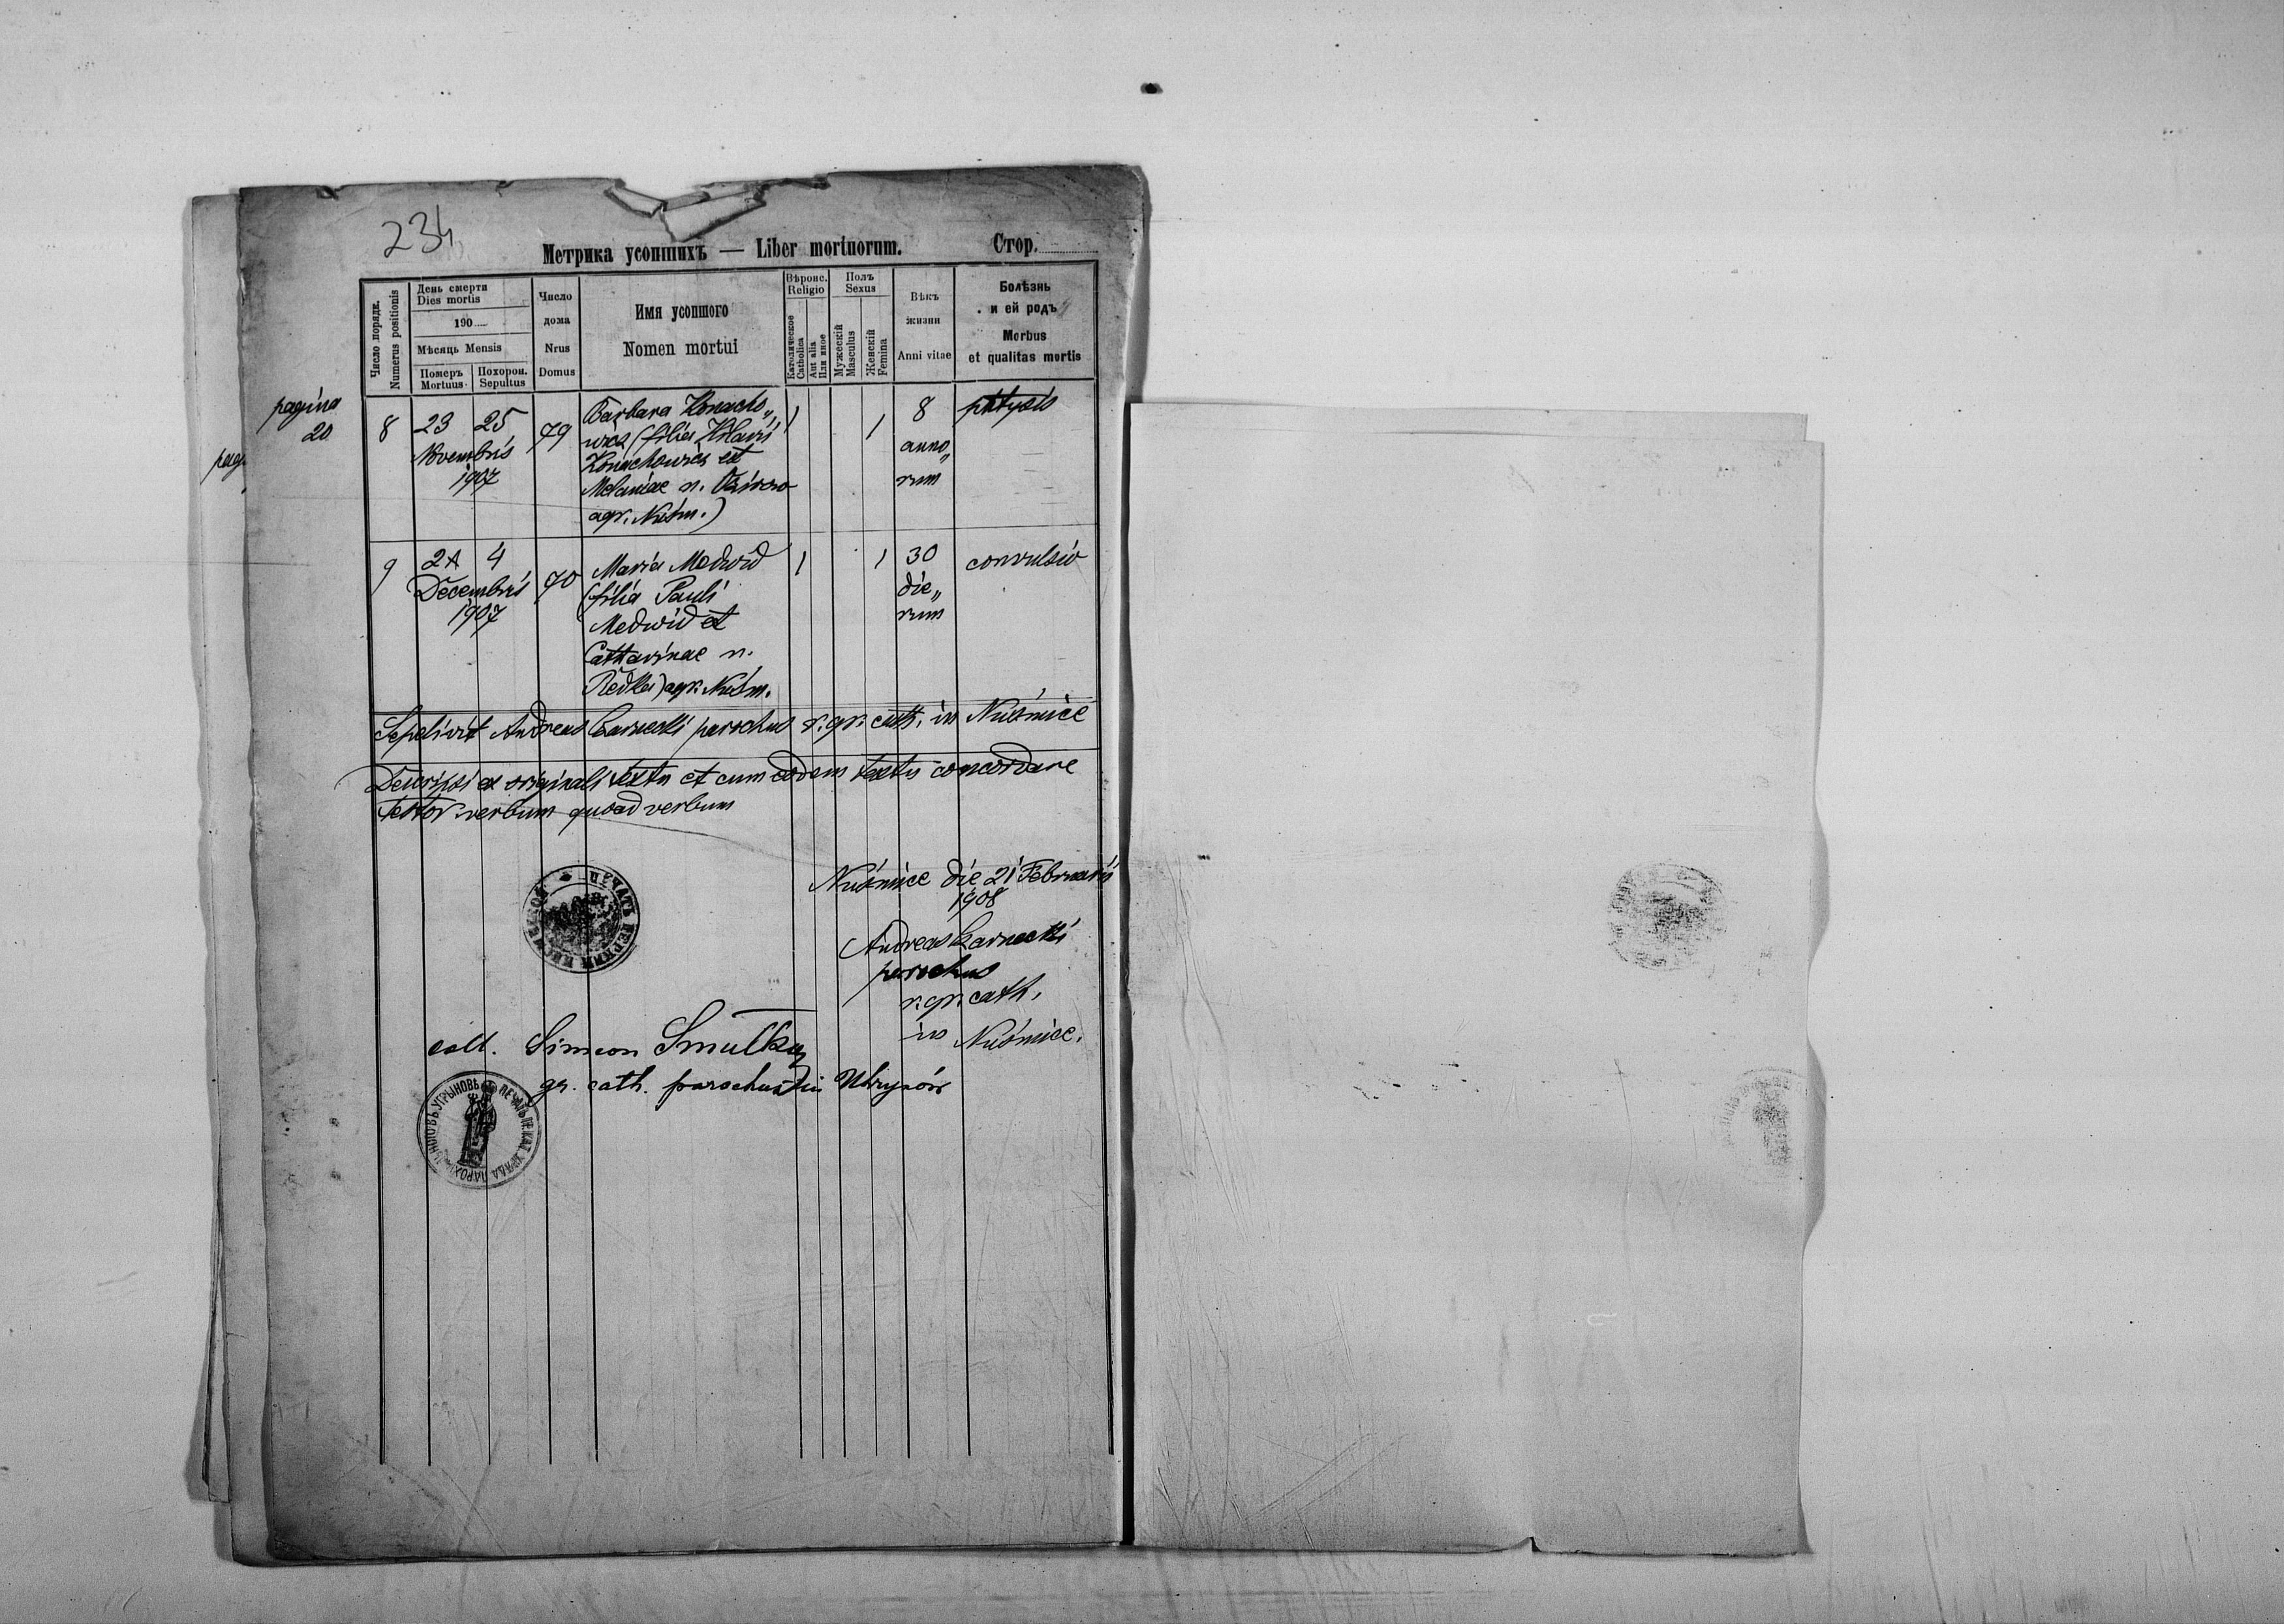 234
Метрика усопшихъ — Liber mortuorum. Стор.
Число порядк.
Numerus positionis
День смерти
Dies mortis
190
Мѣсяць Mensis
Померъ
Mortuus
Похорон.
Sepultus
Число
дома
Nrus
Domus
Имя усопшого
Nomen mortui
Вѣроис.
Religio
Католическое
Catholica
Aut alia
Или иное
Полъ
Sexus
Мужескій
Masculus
Женскій
Femina
Вѣкъ
жизни
Anni vitae
Болѣзнь
и ей родъ
Morbus
et qualitas mortis
pagina
20
pag.
8 23 25 79 Barbara Konacho„ 1 1 8 phtysis
Novembris
1907
wicz (filia Hilarii
Konachowicz et
Melaniae n.
agr. Niżm.)
anno„
rum
9 2 4 70 Maria Medwid 1 1 30 convulsio
Decembris
1907
(filia Pauli
Medwid et
Catharinae n.
Redka) agr. Niżm.
die„
rum
Sepelivit Andreas Carnecki parochus r. gr. cath. in
Descripsi ex originali textu et cum eodem textu concordare
testor verbum quoad verbum
die 21 Februarii
1908
Andreas Carnecki
parochus
r. gr. cath.
in
coll. Simeon Smulka
gr. cath. parochus in Uhrynów
ПЕЧАТЬ ЦЕРКВИ
УГРЫНОВЪ ПЕЧАТЬ